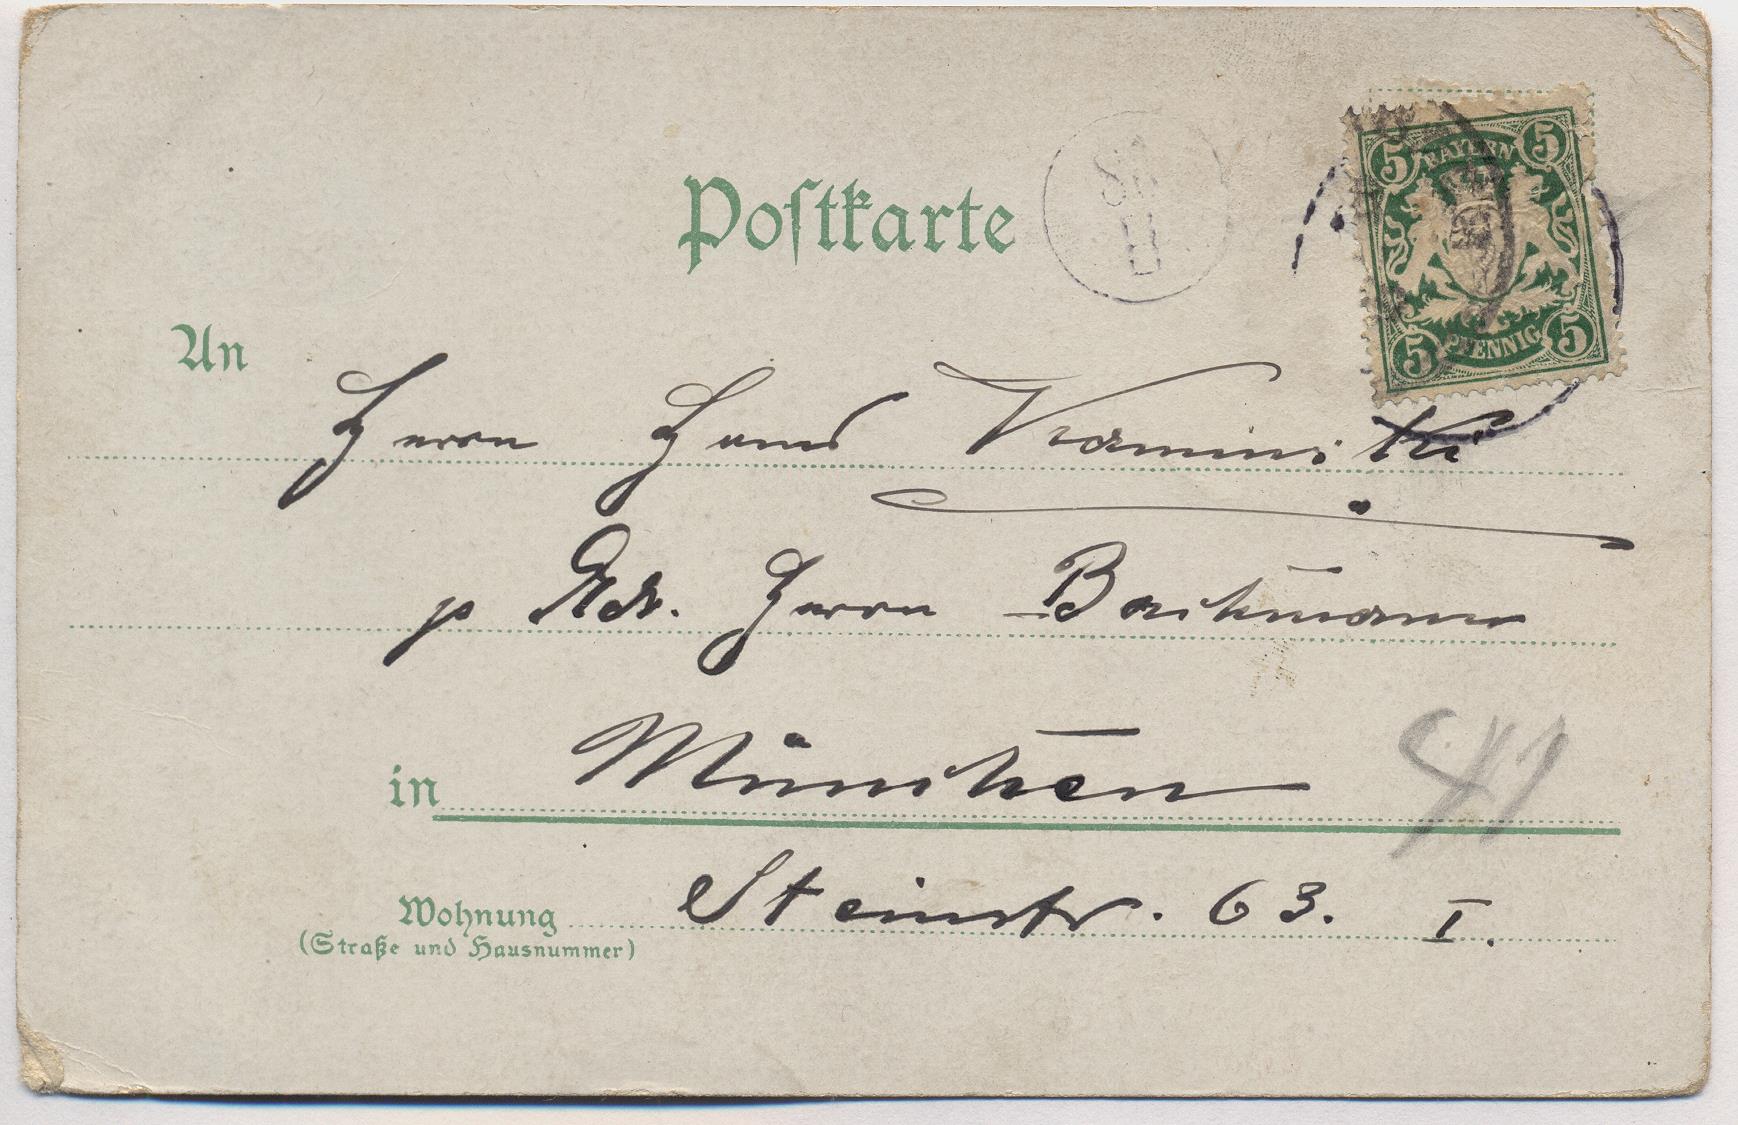 Postkarte
5 BAYERN 5
5 PFENNIG 5
An
Herrn Hans Kaminski
p Adr. Herrn Bachmann
in München
41
Wohnung Steinstr. 63. I.
(Straße und Hausnummer)